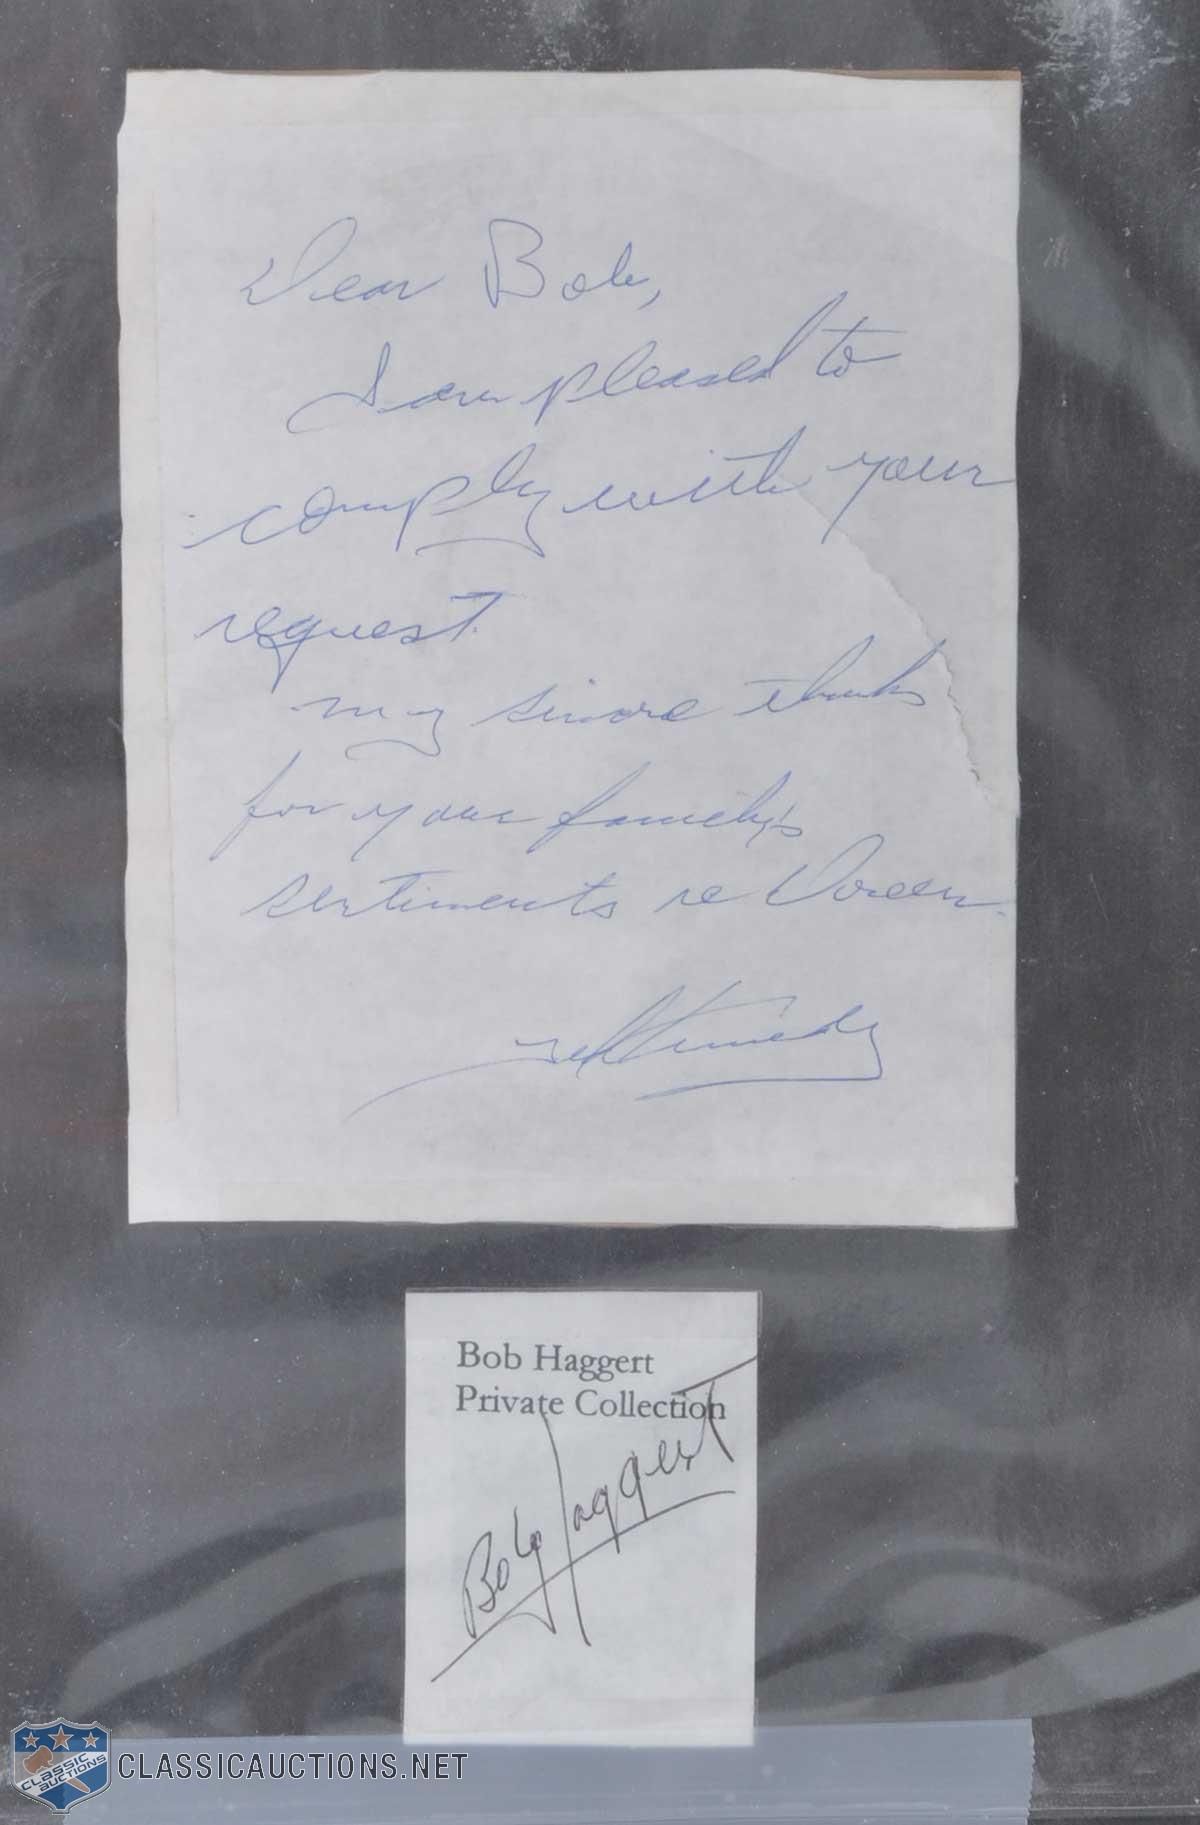 Dear Bob,
I am pleased to
comply with your
request.
my sincere thanks
for your family's
sentiments re Doreen.
Ted Kennedy
Bob Haggert
Private Collection
Bob Haggert
CLASSIC
AUCTIONS
CLASSICAUCTIONS.NET